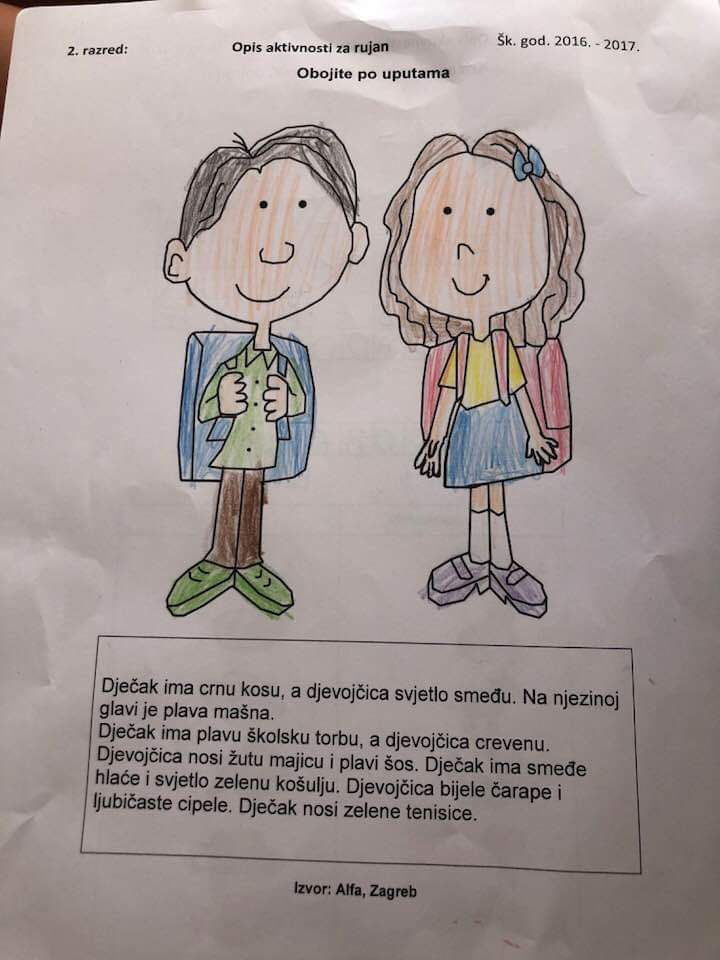 2. razred:
Opis aktivnosti za rujan
Šk. god. 2016. - 2017.
Obojite po uputama
Dječak ima crnu kosu, a djevojčica svjetlo smeđu. Na njezinoj
glavi je plava mašna.
Dječak ima plavu školsku torbu, a djevojčica crevenu.
Djevojčica nosi žutu majicu i plavi šos. Dječak ima smeđe
hlaće i svjetlo zelenu košulju. Djevojčica bijele čarape i
ljubičaste cipele. Dječak nosi zelene tenisice.
Izvor: Alfa, Zagreb